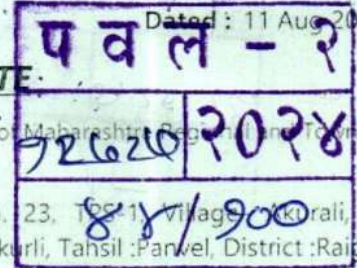 Dated : 11 Aug 20
प व ल - २
TE:
of Maharashtra Regional and Town
२०२४
. 23, TPS-1, Village- Akurali,
४४/१००
kurli, Tahsil :Panvel, District :Rai